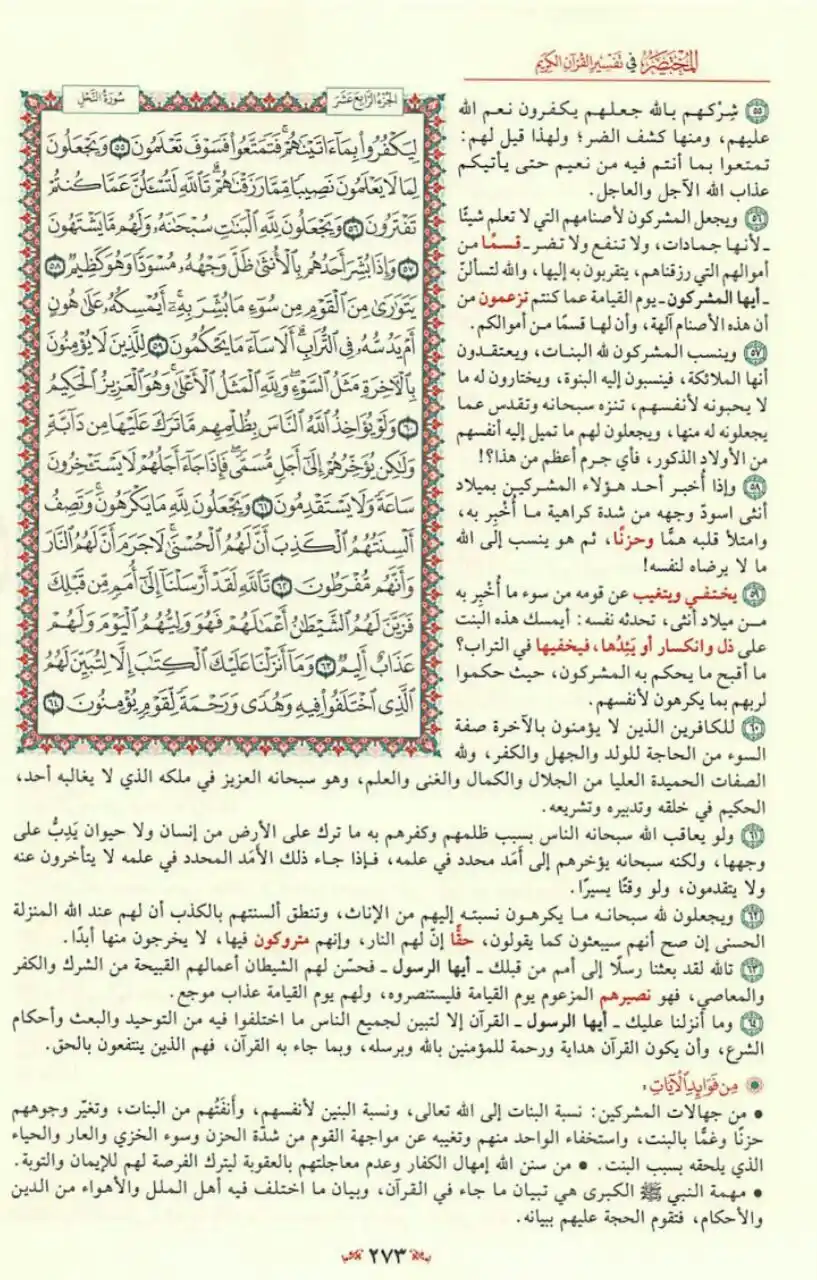 المختصر في تفسير القرآن الكريم
الجزء الرابع عشر
سورة النحل
لِيَكْفُرُوا۟ بِمَآ ءَاتَيْنَٰهُمْ ۚ فَتَمَتَّعُوا۟ فَسَوْفَ تَعْلَمُونَ ٥٥ وَيَجْعَلُونَ
لِمَا لَا يَعْلَمُونَ نَصِيبًا مِّمَّا رَزَقْنَٰهُمْ ۗ تَٱللَّهِ لَتُسْـَٔلُنَّ عَمَّا كُنتُمْ
تَفْتَرُونَ ٥٦ وَيَجْعَلُونَ لِلَّهِ ٱلْبَنَٰتِ سُبْحَٰنَهُۥ وَلَهُم مَّا يَشْتَهُونَ
٥٧ وَإِذَا بُشِّرَ أَحَدُهُم بِٱلْأُنثَىٰ ظَلَّ وَجْهُهُۥ مُسْوَدًّا وَهُوَ كَظِيمٌ ٥٨
يَتَوَٰرَىٰ مِنَ ٱلْقَوْمِ مِن سُوٓءِ مَا بُشِّرَ بِهِۦٓ ۚ أَيُمْسِكُهُۥ عَلَىٰ هُونٍ
أَمْ يَدُسُّهُۥ فِى ٱلتُّرَابِ ۗ أَلَا سَآءَ مَا يَحْكُمُونَ ٥٩ لِلَّذِينَ لَا يُؤْمِنُونَ
بِٱلْـَٔاخِرَةِ مَثَلُ ٱلسَّوْءِ ۖ وَلِلَّهِ ٱلْمَثَلُ ٱلْأَعْلَىٰ ۚ وَهُوَ ٱلْعَزِيزُ ٱلْحَكِيمُ
٦٠ وَلَوْ يُؤَاخِذُ ٱللَّهُ ٱلنَّاسَ بِظُلْمِهِم مَّا تَرَكَ عَلَيْهَا مِن دَآبَّةٍ
وَلَٰكِن يُؤَخِّرُهُمْ إِلَىٰٓ أَجَلٍ مُّسَمًّى ۖ فَإِذَا جَآءَ أَجَلُهُمْ لَا يَسْتَـْٔخِرُونَ
سَاعَةً ۖ وَلَا يَسْتَقْدِمُونَ ٦١ وَيَجْعَلُونَ لِلَّهِ مَا يَكْرَهُونَ ۚ وَتَصِفُ
أَلْسِنَتُهُمُ ٱلْكَذِبَ أَنَّ لَهُمُ ٱلْحُسْنَىٰ ۖ لَا جَرَمَ أَنَّ لَهُمُ ٱلنَّارَ
وَأَنَّهُم مُّفْرَطُونَ ٦٢ تَٱللَّهِ لَقَدْ أَرْسَلْنَآ إِلَىٰٓ أُمَمٍ مِّن قَبْلِكَ
فَزَيَّنَ لَهُمُ ٱلشَّيْطَٰنُ أَعْمَٰلَهُمْ فَهُوَ وَلِيُّهُمُ ٱلْيَوْمَ وَلَهُمْ
عَذَابٌ أَلِيمٌ ٦٣ وَمَآ أَنزَلْنَا عَلَيْكَ ٱلْكِتَٰبَ إِلَّا لِتُبَيِّنَ لَهُمُ
ٱلَّذِى ٱخْتَلَفُوا۟ فِيهِ ۙ وَهُدًى وَرَحْمَةً لِّقَوْمٍ يُؤْمِنُونَ ٦٤
٥٥ شِرْكهم بالله جعلهم يكفرون نعم الله
عليهم، ومنها كشف الضر؛ ولهذا قيل لهم:
تمتعوا بما أنتم فيه من نعيم حتى يأتيكم
عذاب الله الآجل والعاجل.
٥٦ ويجعل المشركون لأصنامهم التي لا تعلم شيئًا
ـ لأنها جمادات، ولا تنفع ولا تضر ـ قسمًا من
أموالهم التي رزقناهم، يتقربون به إليها، والله لتسألنّ
ـ أيها المشركون ـ يوم القيامة عما كنتم تزعمون من
أن هذه الأصنام آلهة، وأن لها قسمًا من أموالكم.
٥٧ وينسب المشركون لله البنات، ويعتقدون
أنها الملائكة، فينسبون إليه البنوة، ويختارون له ما
لا يحبونه لأنفسهم، تنزه سبحانه وتقدس عما
يجعلونه له منها، ويجعلون لهم ما تميل إليه أنفسهم
من الأولاد الذكور، فأي جرم أعظم من هذا؟!
٥٨ وإذا أُخبر أحد هؤلاء المشركين بميلاد
أنثى اسودّ وجهه من شدة كراهية ما أُخْبِر به،
وامتلأ قلبه همًّا وحزنًا، ثم هو ينسب إلى الله
ما لا يرضاه لنفسه!
٥٩ يختفي ويتغيب عن قومه من سوء ما أُخْبِر به
من ميلاد أنثى، تحدثه نفسه: أيمسك هذه البنت
على ذل وانكسار أو يَئِدُها، فيخفيها في التراب؟
ما أقبح ما يحكم به المشركون، حيث حكموا
لربهم بما يكرهون لأنفسهم.
٦٠ للكافرين الذين لا يؤمنون بالآخرة صفة
السوء من الحاجة للولد والجهل والكفر، ولله
الصفات الحميدة العليا من الجلال والكمال والغنى والعلم، وهو سبحانه العزيز في ملكه الذي لا يغالبه أحد،
الحكيم في خلقه وتدبيره وتشريعه.
٦١ ولو يعاقب الله سبحانه الناس بسبب ظلمهم وكفرهم به ما ترك على الأرض من إنسان ولا حيوان يَدِبُّ على
وجهها، ولكنه سبحانه يؤخرهم إلى أَمَد محدد في علمه، فإذا جاء ذلك الأَمَد المحدد في علمه لا يتأخرون عنه
ولا يتقدمون، ولو وقتًا يسيرًا.
٦٢ ويجعلون لله سبحانه ما يكرهون نسبته إليهم من الإناث، وتنطق ألسنتهم بالكذب أن لهم عند الله المنزلة
الحسنى إن صح أنهم سيبعثون كما يقولون، حقًّا إنّ لهم النار، وإنهم متروكون فيها، لا يخرجون منها أبدًا.
٦٣ تالله لقد بعثنا رسلًا إلى أمم من قبلك ـ أيها الرسول ـ فحسّن لهم الشيطان أعمالهم القبيحة من الشرك والكفر
والمعاصي، فهو نصيرهم المزعوم يوم القيامة فليستنصروه، ولهم يوم القيامة عذاب موجع.
٦٤ وما أنزلنا عليك ـ أيها الرسول ـ القرآن إلا لتبين لجميع الناس ما اختلفوا فيه من التوحيد والبعث وأحكام
الشرع، وأن يكون القرآن هداية ورحمة للمؤمنين بالله وبرسله، وبما جاء به القرآن، فهم الذين ينتفعون بالحق.
من فوائد الآيات:
• من جهالات المشركين: نسبة البنات إلى الله تعالى، ونسبة البنين لأنفسهم، وأَنفَتُهم من البنات، وتغيّر وجوههم
حزنًا وغمًّا بالبنت، واستخفاء الواحد منهم وتغيبه عن مواجهة القوم من شدّة الحزن وسوء الخزي والعار والحياء
الذي يلحقه بسبب البنت. • من سنن الله إمهال الكفار وعدم معاجلتهم بالعقوبة ليترك الفرصة لهم للإيمان والتوبة.
• مهمة النبي ﷺ الكبرى هي تبيان ما جاء في القرآن، وبيان ما اختلف فيه أهل الملل والأهواء من الدين
والأحكام، فتقوم الحجة عليهم ببيانه.
٢٧٣